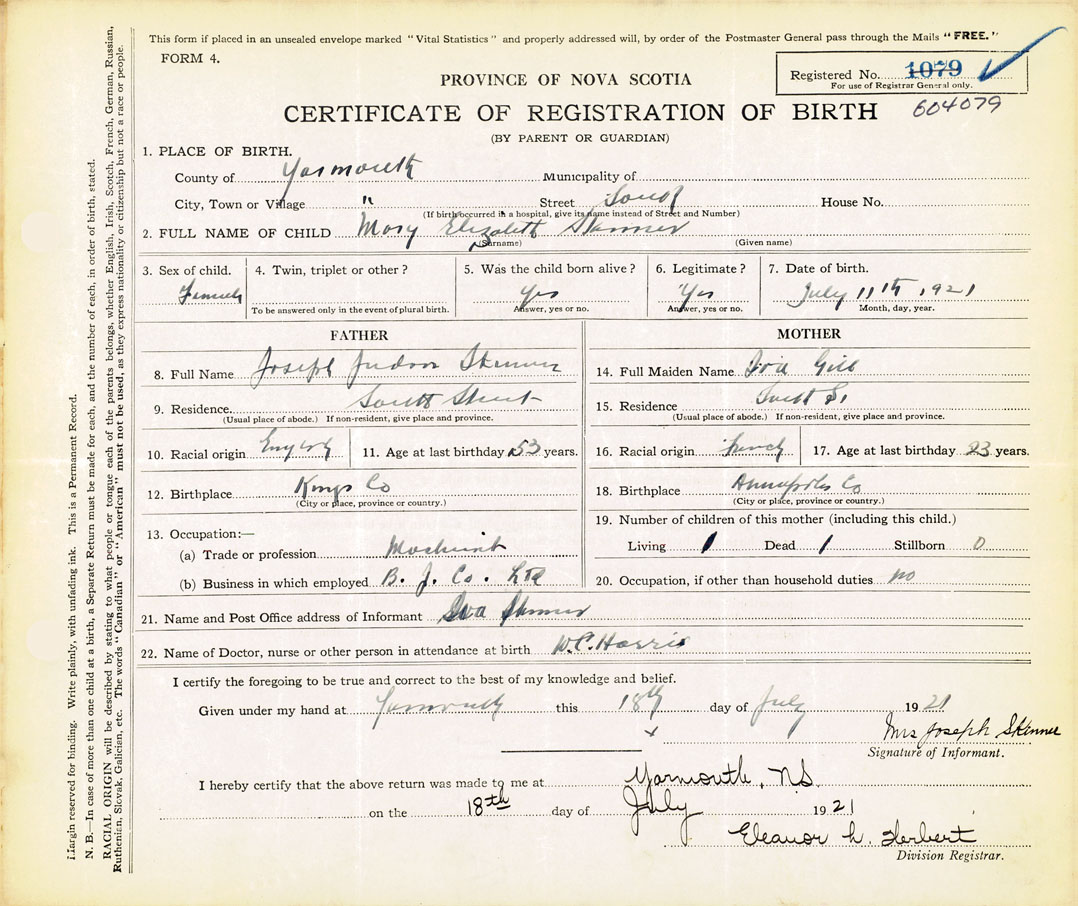 This form if placed in an unsealed envelope marked "Vital Statistics" and properly addressed will, by order of the Postmaster General pass through the Mails "FREE."
FORM 4.
Registered No. 1079
For use of Registrar General only.
604079
PROVINCE OF NOVA SCOTIA
CERTIFICATE OF REGISTRATION OF BIRTH
(BY PARENT OR GUARDIAN)
1. PLACE OF BIRTH.
County of Yarmouth Municipality of
City, Town or Village " Street South House No.
(If birth occurred in a hospital, give its name instead of Street and Number)
2. FULL NAME OF CHILD Mary Elizabeth Skinner
(Surname) (Given name)
3. Sex of child. Female
4. Twin, triplet or other?
To be answered only in the event of plural birth.
5. Was the child born alive? Yes
Answer, yes or no.
6. Legitimate? Yes
Answer, yes or no.
7. Date of birth. July 11th 1921
Month, day, year.
FATHER
8. Full Name Joseph Judson Skinner
9. Residence South Street
(Usual place of abode.) If non-resident, give place and province.
10. Racial origin English 11. Age at last birthday 53 years.
12. Birthplace Kings Co
(City or place, province or country.)
13. Occupation:—
(a) Trade or profession Machinist
(b) Business in which employed B. J. Co. Ltd
MOTHER
14. Full Maiden Name Gill
15. Residence South St
(Usual place of abode.) If non-resident, give place and province.
16. Racial origin French 17. Age at last birthday 23 years.
18. Birthplace Annapolis Co
(City or place, province or country.)
19. Number of children of this mother (including this child.)
Living 1 Dead 1 Stillborn 0
20. Occupation, if other than household duties no
21. Name and Post Office address of Informant Skinner
22. Name of Doctor, nurse or other person in attendance at birth W.C. Harris
I certify the foregoing to be true and correct to the best of my knowledge and belief.
Given under my hand at Yarmouth this 18th day of July 1921
x Mrs Joseph Skinner
Signature of Informant.
I hereby certify that the above return was made to me at Yarmouth, NS
on the 18th day of July 1921
Eleanor L. Herbert
Division Registrar.
Margin reserved for binding. Write plainly, with unfading ink. This is a Permanent Record.
N. B.—In case of more than one child at a birth, a Separate Return must be made for each, and the number of each, in order of birth, stated.
RACIAL ORIGIN will be described by stating to what people or tongue each of the parents belongs, whether English, Irish, Scotch, French, German, Russian,
Ruthenian, Slovak, Galician, etc. The words "Canadian" or "American" must not be used, as they express nationality or citizenship but not a race or people.